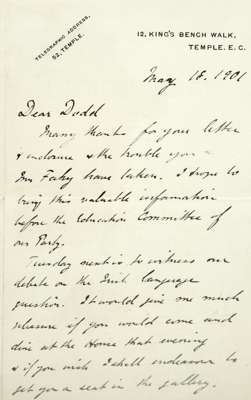 TELEGRAPHIC ADDRESS,
52, TEMPLE.
12, KING'S BENCH WALK,
TEMPLE. E. C.
May 18. 1901
Dear Dodd
Many thanks for your letter
& enclosure & the trouble you &
Mr Fahy have taken. I hope to
bring this valuable information
before the Education Committee of
our Party.
Tuesday next is to witness our
debate on the Irish language
question. It would give me much
pleasure if you would come and
dine at the House that evening
& if you wish I shall endeavour to
get you a seat in the gallery.